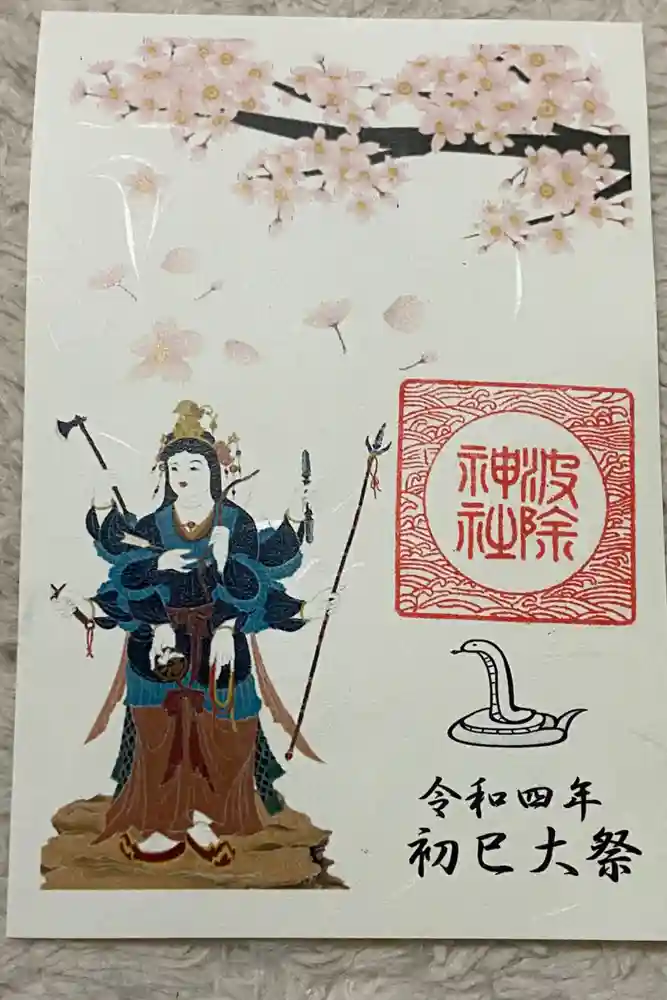 波除
神社
令和四年
初巳大祭